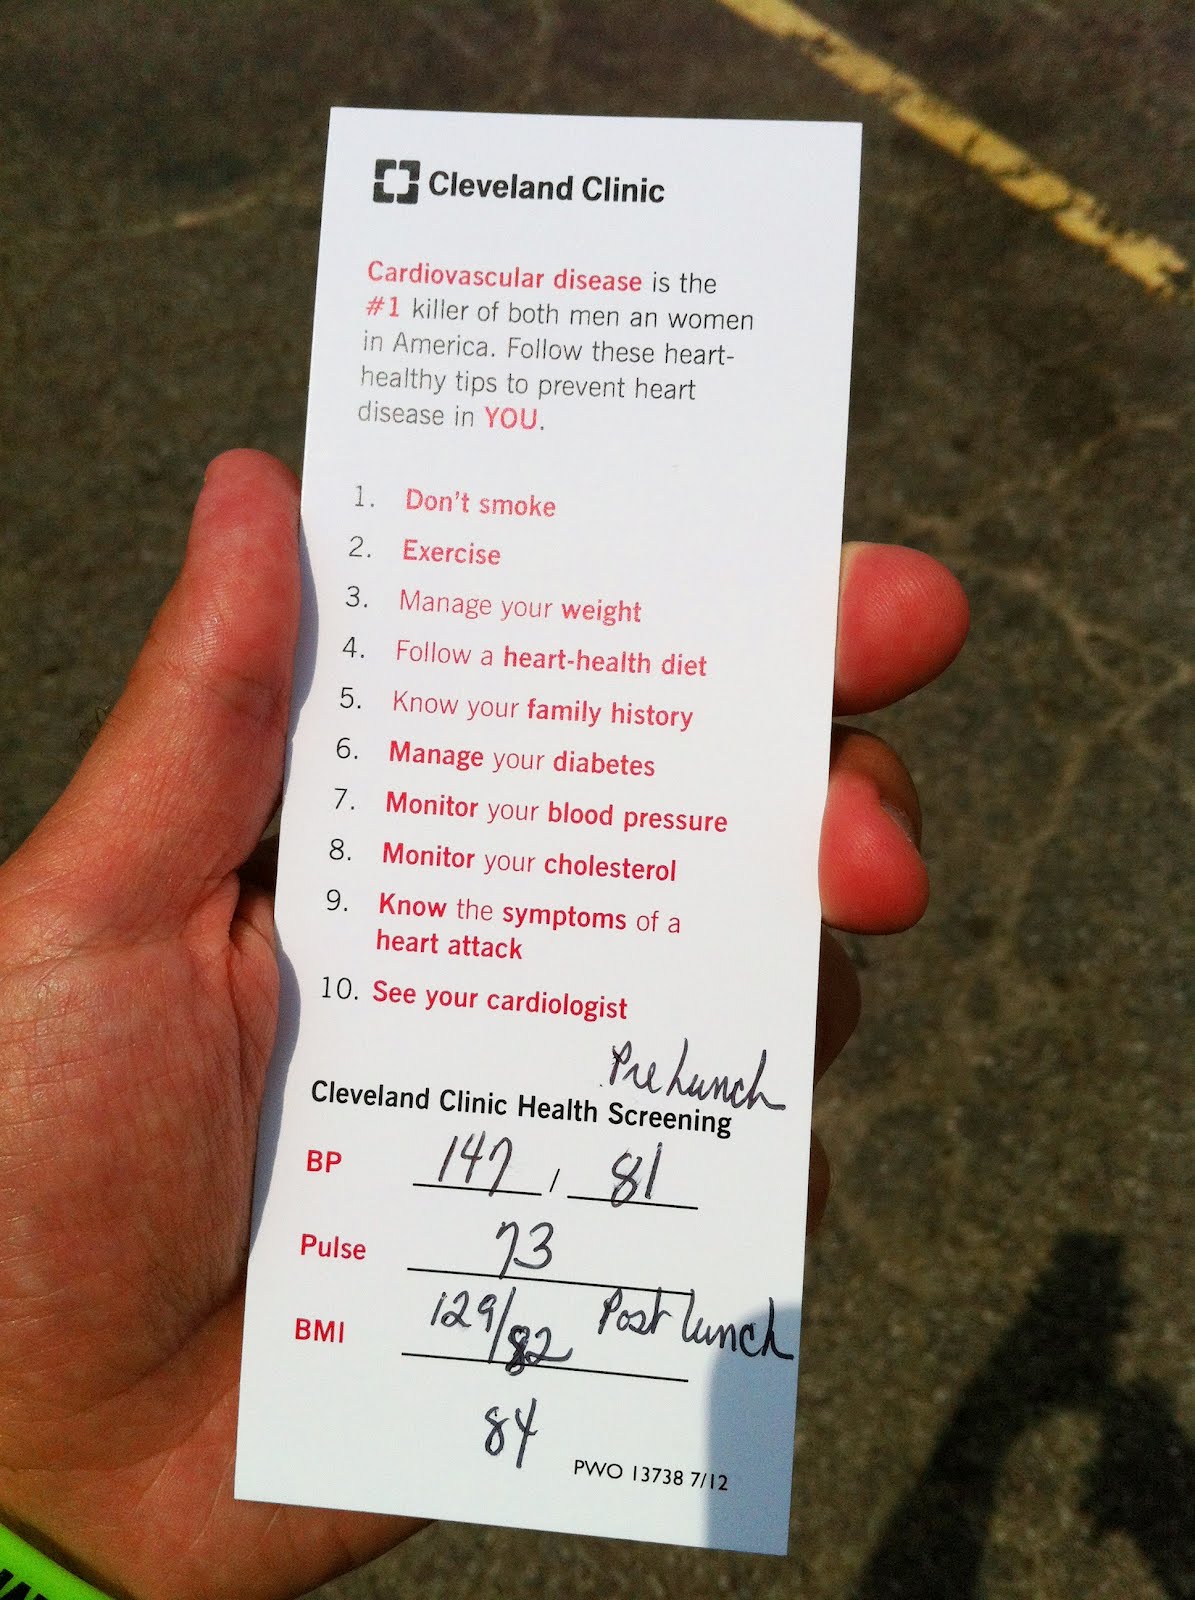 Cleveland Clinic
Cardiovascular disease is the
#1 killer of both men an women
in America. Follow these heart-
healthy tips to prevent heart
disease in YOU.
1. Don't smoke
2. Exercise
3. Manage your weight
4. Follow a heart-health diet
5. Know your family history
6. Manage your diabetes
7. Monitor your blood pressure
8. Monitor your cholesterol
9. Know the symptoms of a
heart attack
10. See your cardiologist
Pre Lunch
Cleveland Clinic Health Screening
BP 147 / 81
Pulse 73
BMI 129/82 Post lunch
84
PWO 13738 7/12